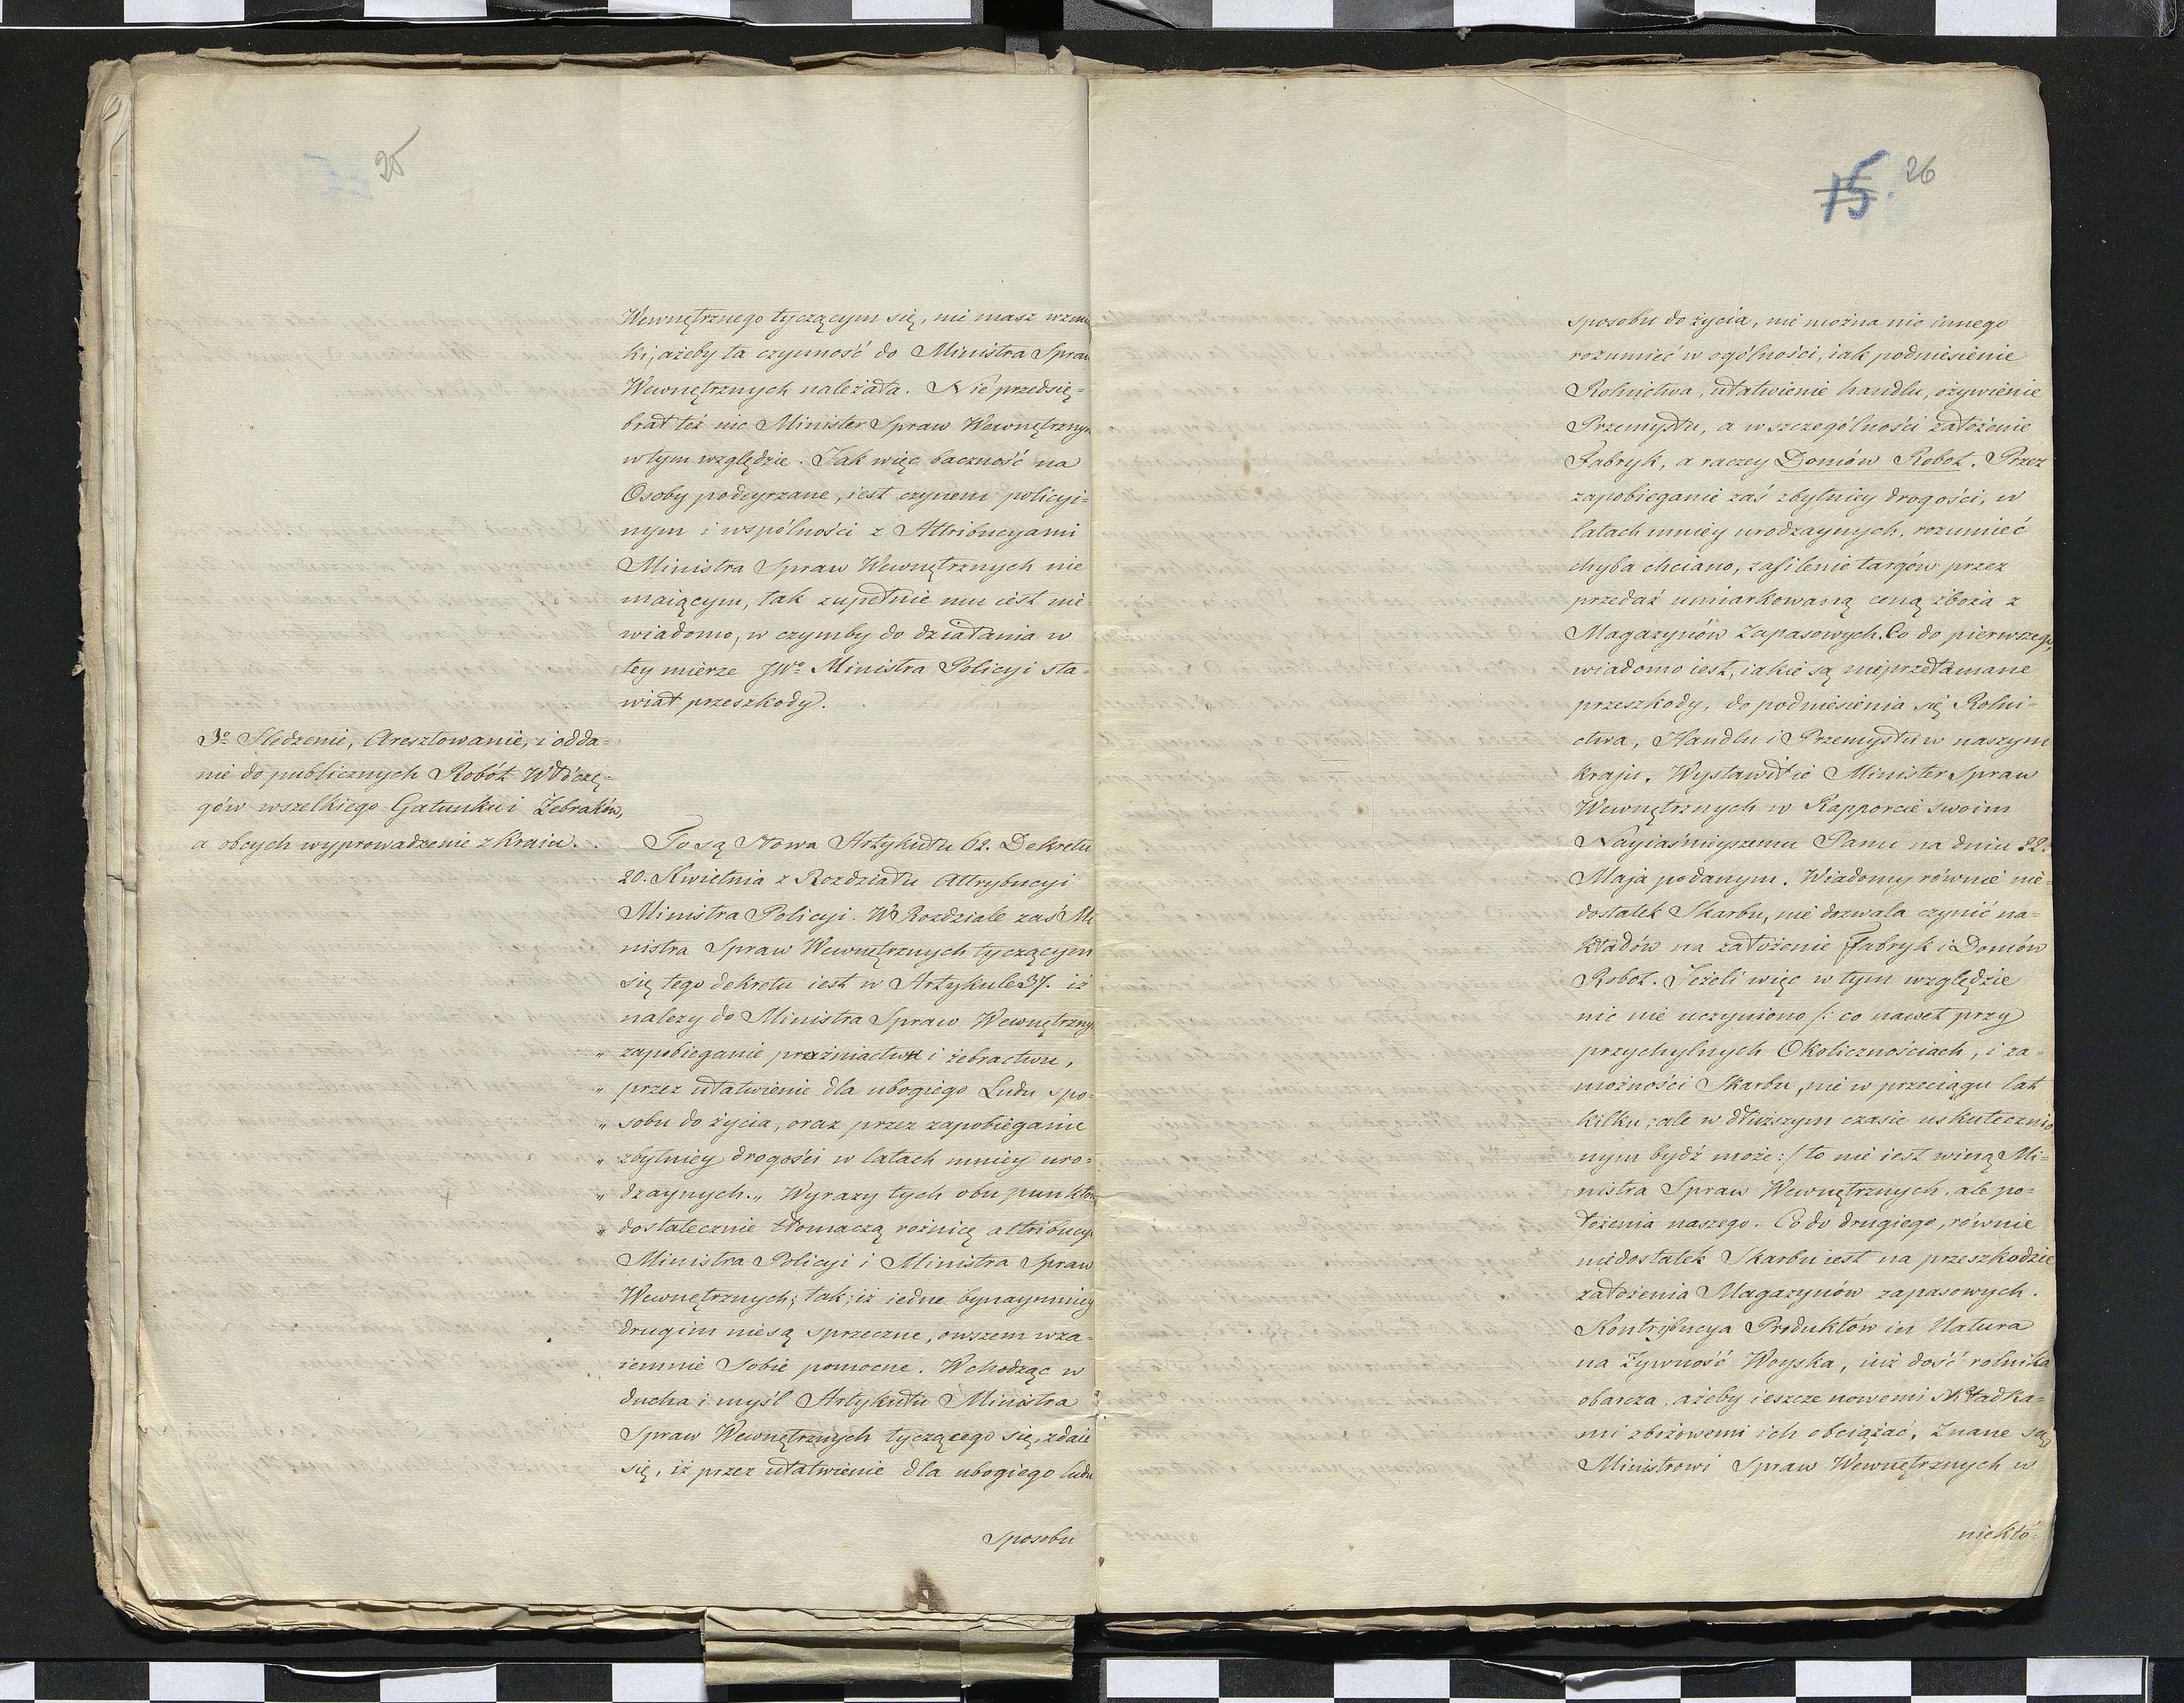 25
Wewnętrznego tyczącym się, nie masz wzmian
ki, ażeby ta czynność do Ministra Spraw
Wewnętrznych należała. Nie przedsię=
brał też nic Minister Spraw Wewnętrznych
w tym względzie. Tak więc baczność na
Osoby podeyrzane, iest czynem policyi=
nym i wspólności z Attribucyami
Ministra Spraw Wewnętrznych nie
maiącym, tak zupełnie mu iest nie=
wiadomo, w czymby do działania w
tey mierze JWo Ministra Policyi sta=
wiał przeszkody.
3o Sledzenie, Aresztowanie, i odda=
nie do publicznych Robót Włóczę=
gów wszelkiego Gatunku i Żebraków,
a obcych wyprowadzenie z kraiu.
To są słowa Artykułu 62. Dekretu
20. Kwietnia z Rozdziału Attrybucyi
Ministra Policyi. W Rozdziale zaś Mi
nistra Spraw Wewnętrznych tyczącym
się tego dekretu iest w Artykule 37. iż
należy do Ministra Spraw Wewnętrznych
„ zapobieganie prożniactwu i żebractwu,
„ przez ułatwienie dla ubogiego Ludu spo=
„ sobu do życia, oraz przez zapobieganie
„ zbytniey drogości w latach mniey uro=
„ dzaynych.„ Wyrazy tych obu punktów
„ dostatecznie tłomaczą rożnicę attribucyi
Ministra Policyi i Ministra Spraw
Wewnętrznych; tak, iż iedne bynaymniey
drugim nie są sprzeczne, owszem wza=
iemnie sobie pomocne. Wchodząc w
ducha i myśl Artykułu Ministra
Spraw Wewnętrznych tyczącego się, zdaie
się, iż przez ułatwienie dla ubogiego ludu
Sposobu
15. 26
sposobu do życia, nie można nic innego
rozumieć w ogólności, iak podniesienie
Rolnictwa, ułatwienie handlu, ożywienie
Przemysłu, a w szczególności założenie
Fabryk, a raczey Domów Robot. Przez
zapobieganie zaś zbytniey drogości, w
latach mniey urodzaynych, rozumieć
chyba chciano, zasilenie targów przez
przedaż umiarkowaną ceną zboża z
Magazynów Zapasowych. Co do pierwszego,
wiadomo iest, iakie są nieprzełamane
przeszkody, do podniesienia się Rolni=
ctwa, Handlu i Przemysłu w naszym
Kraju. Wystawił ie Minister Spraw
Wewnętrznych w Rapporcie swoim
Nayiaśnieyszemu Panu na dniu 22.
Maja podanym. Wiadomy równie nie=
dostatek Skarbu, nie dozwala czynić na=
kładów na założenie Fabryk i Domów
Robot. Jeżeli więc w tym względzie
nic nie uczyniono /: co nawet przy
przychylnych Okolicznościach, i za=
możności Skarbu, nie w przeciągu lat
kilku, ale w dłuższym czasie uskutecznio
nym bydź może :/ to nie iest winą Mi=
nistra Spraw Wewnętrznych, ale po=
łożenia naszego. Co do drugiego, równie
niedostatek Skarbu iest na przeszkodzie
założenia Magazynów zapasowych.
Kontrybucya Produktów in Natura
na Żywność Woyska, iuż dość rolnika
obarcza, ażeby ieszcze nowemi składka=
mi zbożowemi ich obciążać, Znane są
Ministrowi Spraw Wewnętrznych w
niektó=